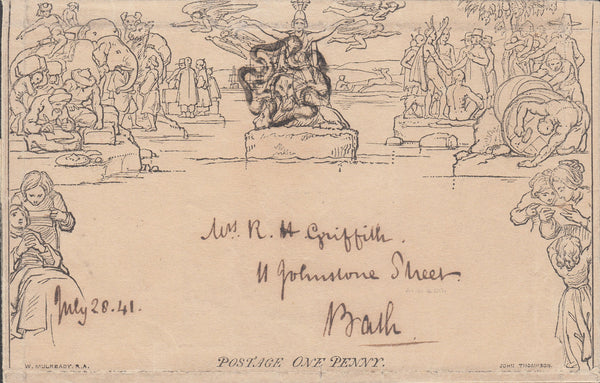 Mrs. R. H Griffith.
11 Johnstone Street
Bath
July 28. 41.
POSTAGE ONE PENNY.
W. MULREADY. R.A.
JOHN THOMPSON.